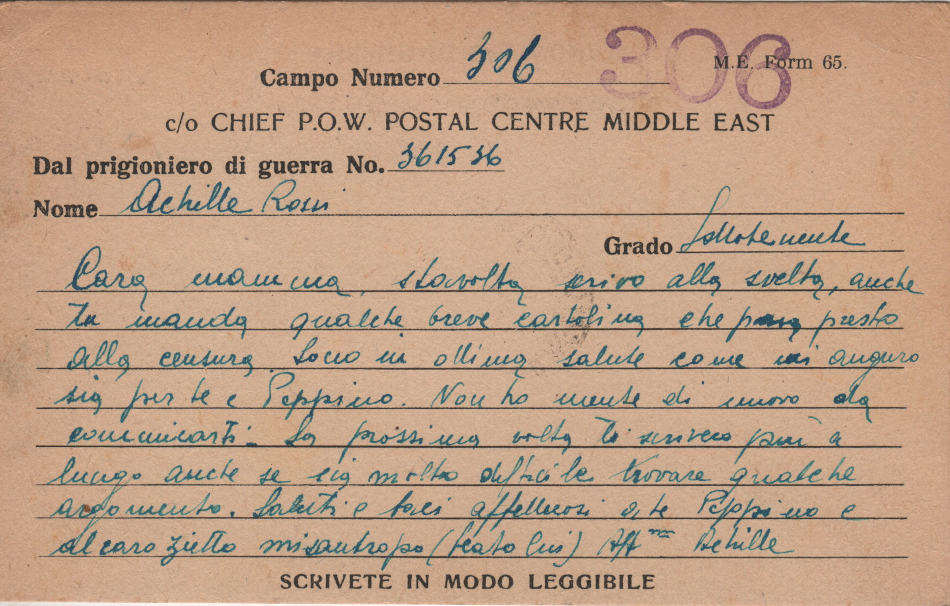 306
M.E. Form 65.
Campo Numero 306
c/o CHIEF P.O.W. POSTAL CENTRE MIDDLE EAST
Dal prigioniero di guerra No. 361536
Nome Achille Rossi
Grado Sottotenente
Cara mamma, stavolta scrivo alla svelta, anche
tu manda qualche breve cartolina che passa presto
alla censura. Sono in ottima salute come mi auguro
sia per te e Peppino. Non ho niente di nuovo da
comunicarti. La prossima volta ti scriverò più a
lungo anche se sia molto difficile trovare qualche
argomento. Saluti e baci affettuosi a te Peppino e
al caro zietto misantropo (beato lui) Aff.mo Achille
SCRIVETE IN MODO LEGGIBILE